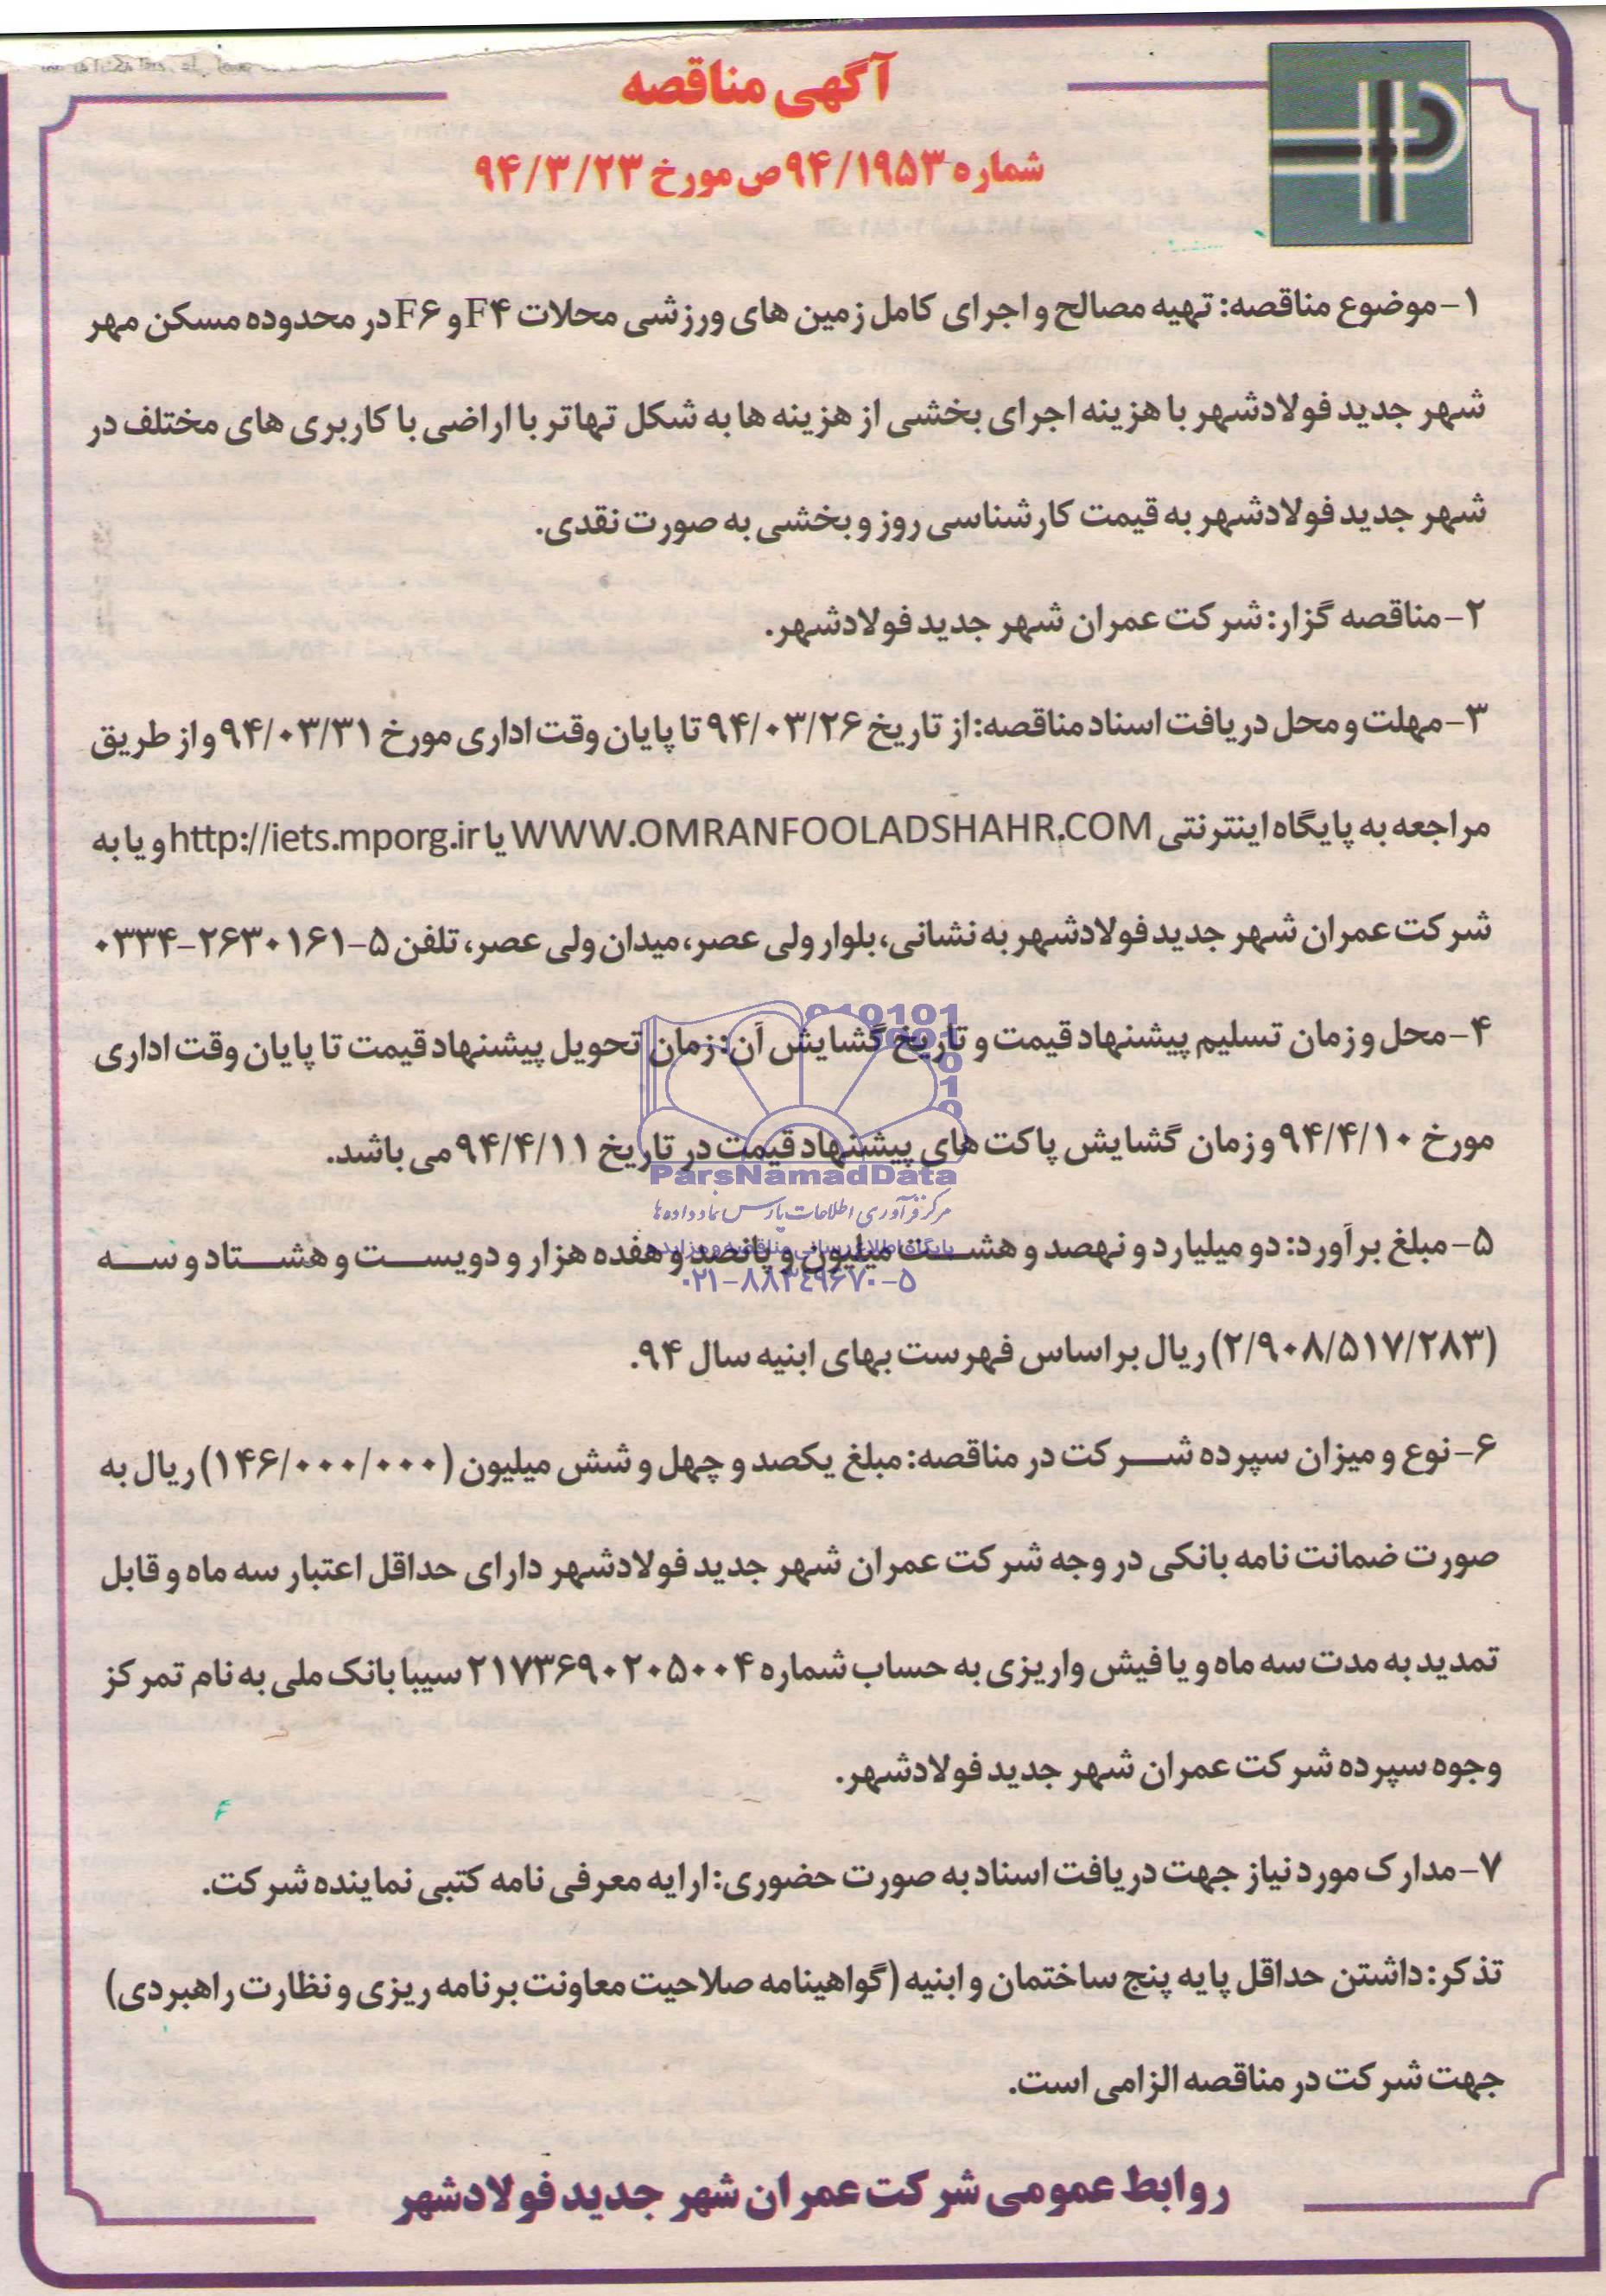 آگهی مناقصه
شماره ۹۴/۱۹۵۳ص مورخ ۹۴/۳/۲۳
۱- موضوع مناقصه: تهیه مصالح و اجرای کامل زمین های ورزشی محلات F۴ و F۶ در محدوده مسکن مهر
شهر جدید فولادشهر با هزینه اجرای بخشی از هزینه ها به شکل تهاتر با اراضی با کاربری های مختلف در
شهر جدید فولادشهر به قیمت کارشناسی روز و بخشی به صورت نقدی.
۲- مناقصه گزار: شرکت عمران شهر جدید فولادشهر.
۳- مهلت و محل دریافت اسناد مناقصه: از تاریخ ۹۴/۰۳/۲۶ تا پایان وقت اداری مورخ ۹۴/۰۳/۳۱ و از طریق
مراجعه به پایگاه اینترنتی WWW.OMRANFOOLADSHAHR.COM یا http://iets.mporg.ir و یا به
شرکت عمران شهر جدید فولادشهر به نشانی، بلوار ولی عصر، میدان ولی عصر، تلفن ۵-۲۶۳۰۱۶۱-۰۳۳۴
۴- محل و زمان تسلیم پیشنهاد قیمت و تاریخ گشایش آن: زمان تحویل پیشنهاد قیمت تا پایان وقت اداری
مورخ ۹۴/۴/۱۰ و زمان گشایش پاکت های پیشنهاد قیمت در تاریخ ۹۴/۴/۱۱ می باشد.
ParsNamadData
مرکز فرآوری اطلاعات پارس نماد داده ها
۵- مبلغ برآورد: دو میلیارد و نهصد و هشت میلیون و پانصد و هفده هزار و دویست و هشتاد و سه
پایگاه اطلاع رسانی مناقصه و مزایده
۰۲۱-۸۸۳۴۹۶۷۰-۵
(۲/۹۰۸/۵۱۷/۲۸۳) ریال براساس فهرست بهای ابنیه سال ۹۴.
۶- نوع و میزان سپرده شرکت در مناقصه: مبلغ یکصد و چهل و شش میلیون (۱۴۶/۰۰۰/۰۰۰) ریال به
صورت ضمانت نامه بانکی در وجه شرکت عمران شهر جدید فولادشهر دارای حداقل اعتبار سه ماه و قابل
تمدید به مدت سه ماه و یا فیش واریزی به حساب شماره ۲۱۷۳۶۹۰۲۰۵۰۰۴ سیبا بانک ملی به نام تمرکز
وجوه سپرده شرکت عمران شهر جدید فولادشهر.
۷- مدارک مورد نیاز جهت دریافت اسناد به صورت حضوری: ارایه معرفی نامه کتبی نماینده شرکت.
تذکر: داشتن حداقل پایه پنج ساختمان و ابنیه (گواهینامه صلاحیت معاونت برنامه ریزی و نظارت راهبردی)
جهت شرکت در مناقصه الزامی است.
روابط عمومی شرکت عمران شهر جدید فولادشهر